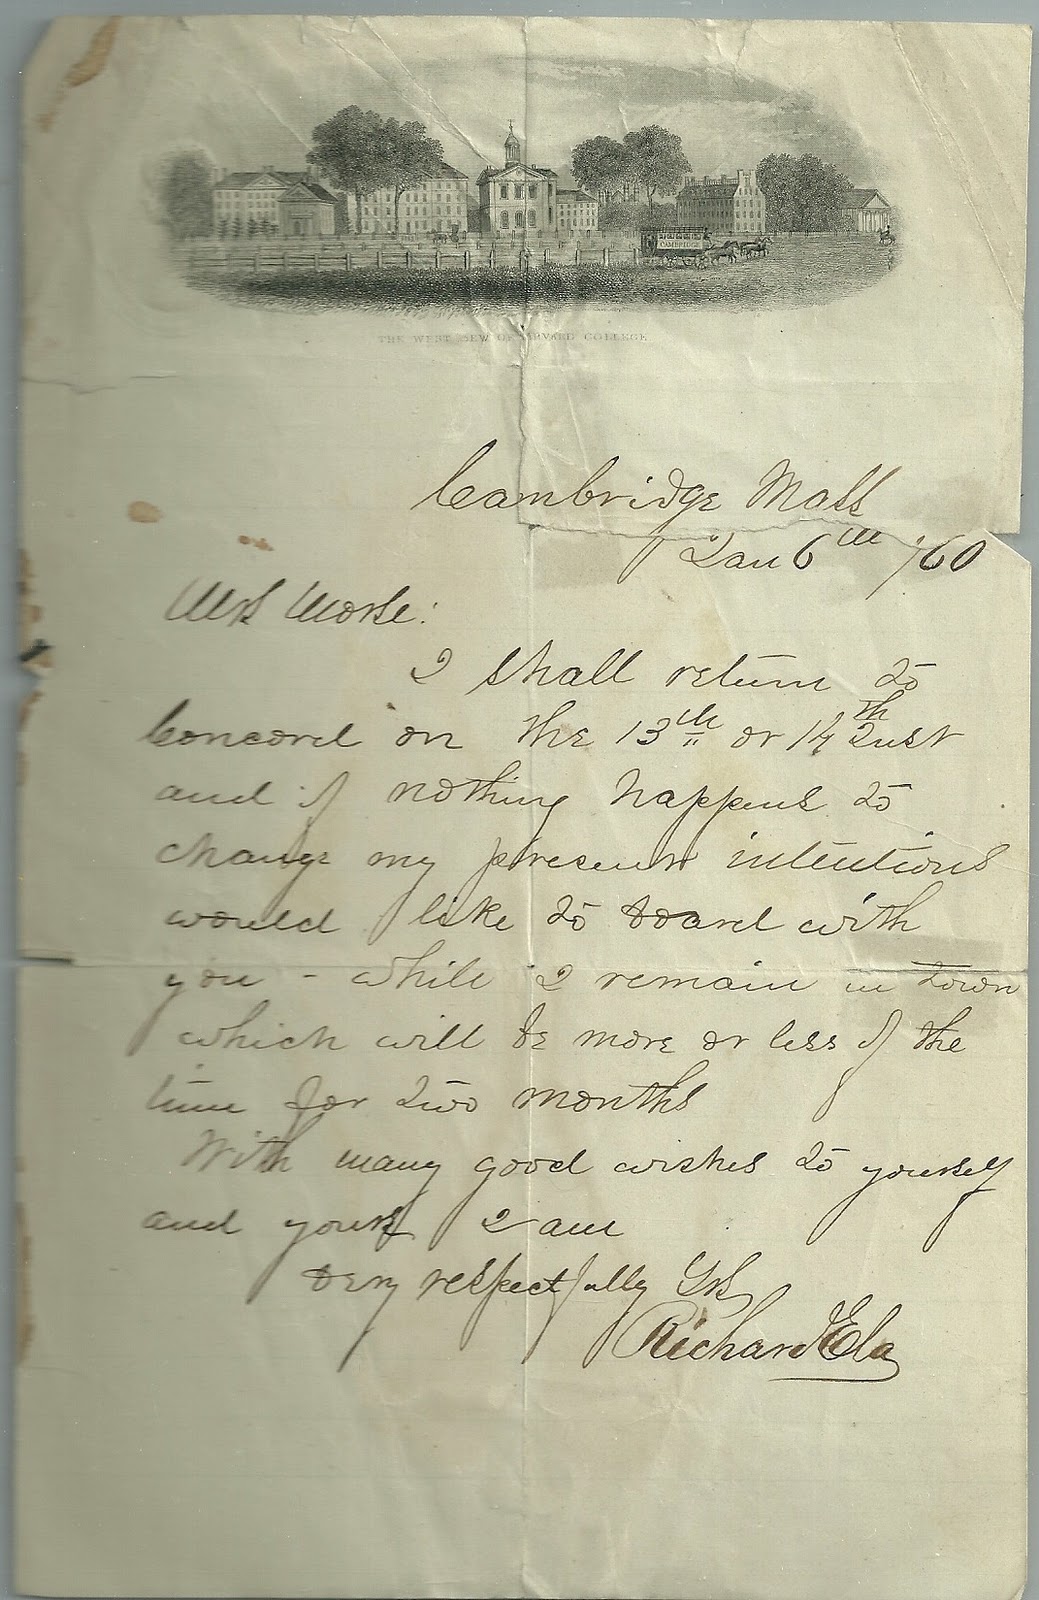 CAMBRIDGE
THE WEST VIEW OF HARVARD COLLEGE
Cambridge Mass
Jan 6th /60
Mrs Morse:
I shall return to
Concord on the 13th or 14th Inst
and if nothing happens to
change my present intentions
would like to board with
you - while I remain in town
which will be more or less of the
time for two months
With many good wishes to yourself
and yours I am
very respectfully Yrs
Richard Ela